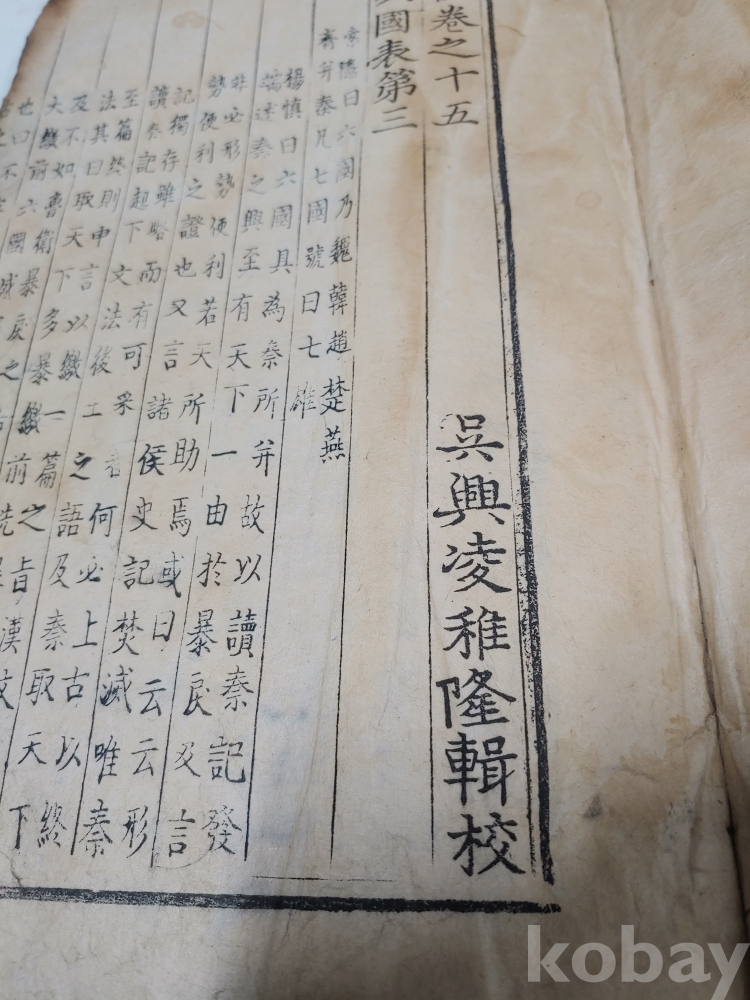 卷之十五 吳興凌稚隆輯校
國表第三
索隱曰六國乃魏韓趙楚燕
齊并秦凡七國號曰七雄
楊慎曰六國具為秦所并故以讀秦記發
端述秦之興至有天下一由於暴戾又言
非必形勢便利若天所助焉或曰云云形
勢便利之證也又言諸侯史記焚滅唯秦
記獨存雖略而有可采者何必上古以終
讀秦記起下文法後王之語及秦取天下
至篇終則申言以繳一篇之旨漢
法其曰取天下多暴繳前
及不如魯衛暴戾之
大繳前六國滅
也曰不
kobay